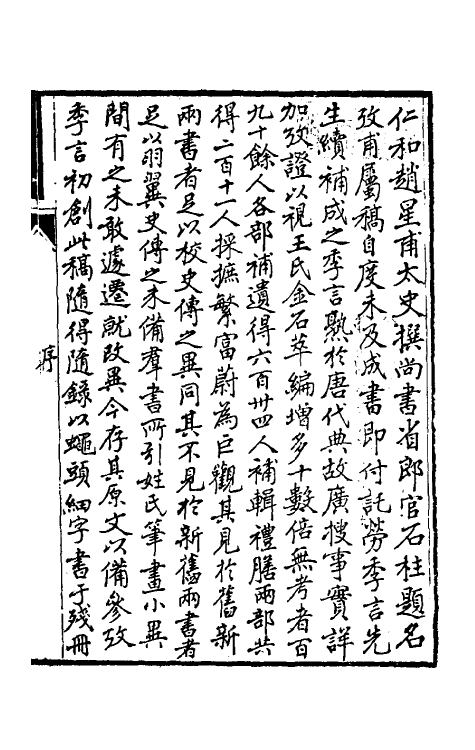 仁和趙星甫太史撰尚書省郎官石柱題名
攷甫屬稿自度未及成書即付託勞季言先
生續補成之季言熟於唐代典故廣搜事實詳
加攷證以視王氏金石萃編增多十數倍無考者百
九十餘人各部補遺得六百卅四人補輯禮膳兩部共
得二百十一人採摭繁富蔚為巨觀其見於舊新
兩書者足以校史傳之異同其不見於新舊兩書者
足以羽翼史傳之未備羣書所引姓氏筆畫小異
間有之未敢遽遷就改異今存其原文以備參攷
季言初創此稿隨得隨錄以蠅頭細字書于殘冊
序